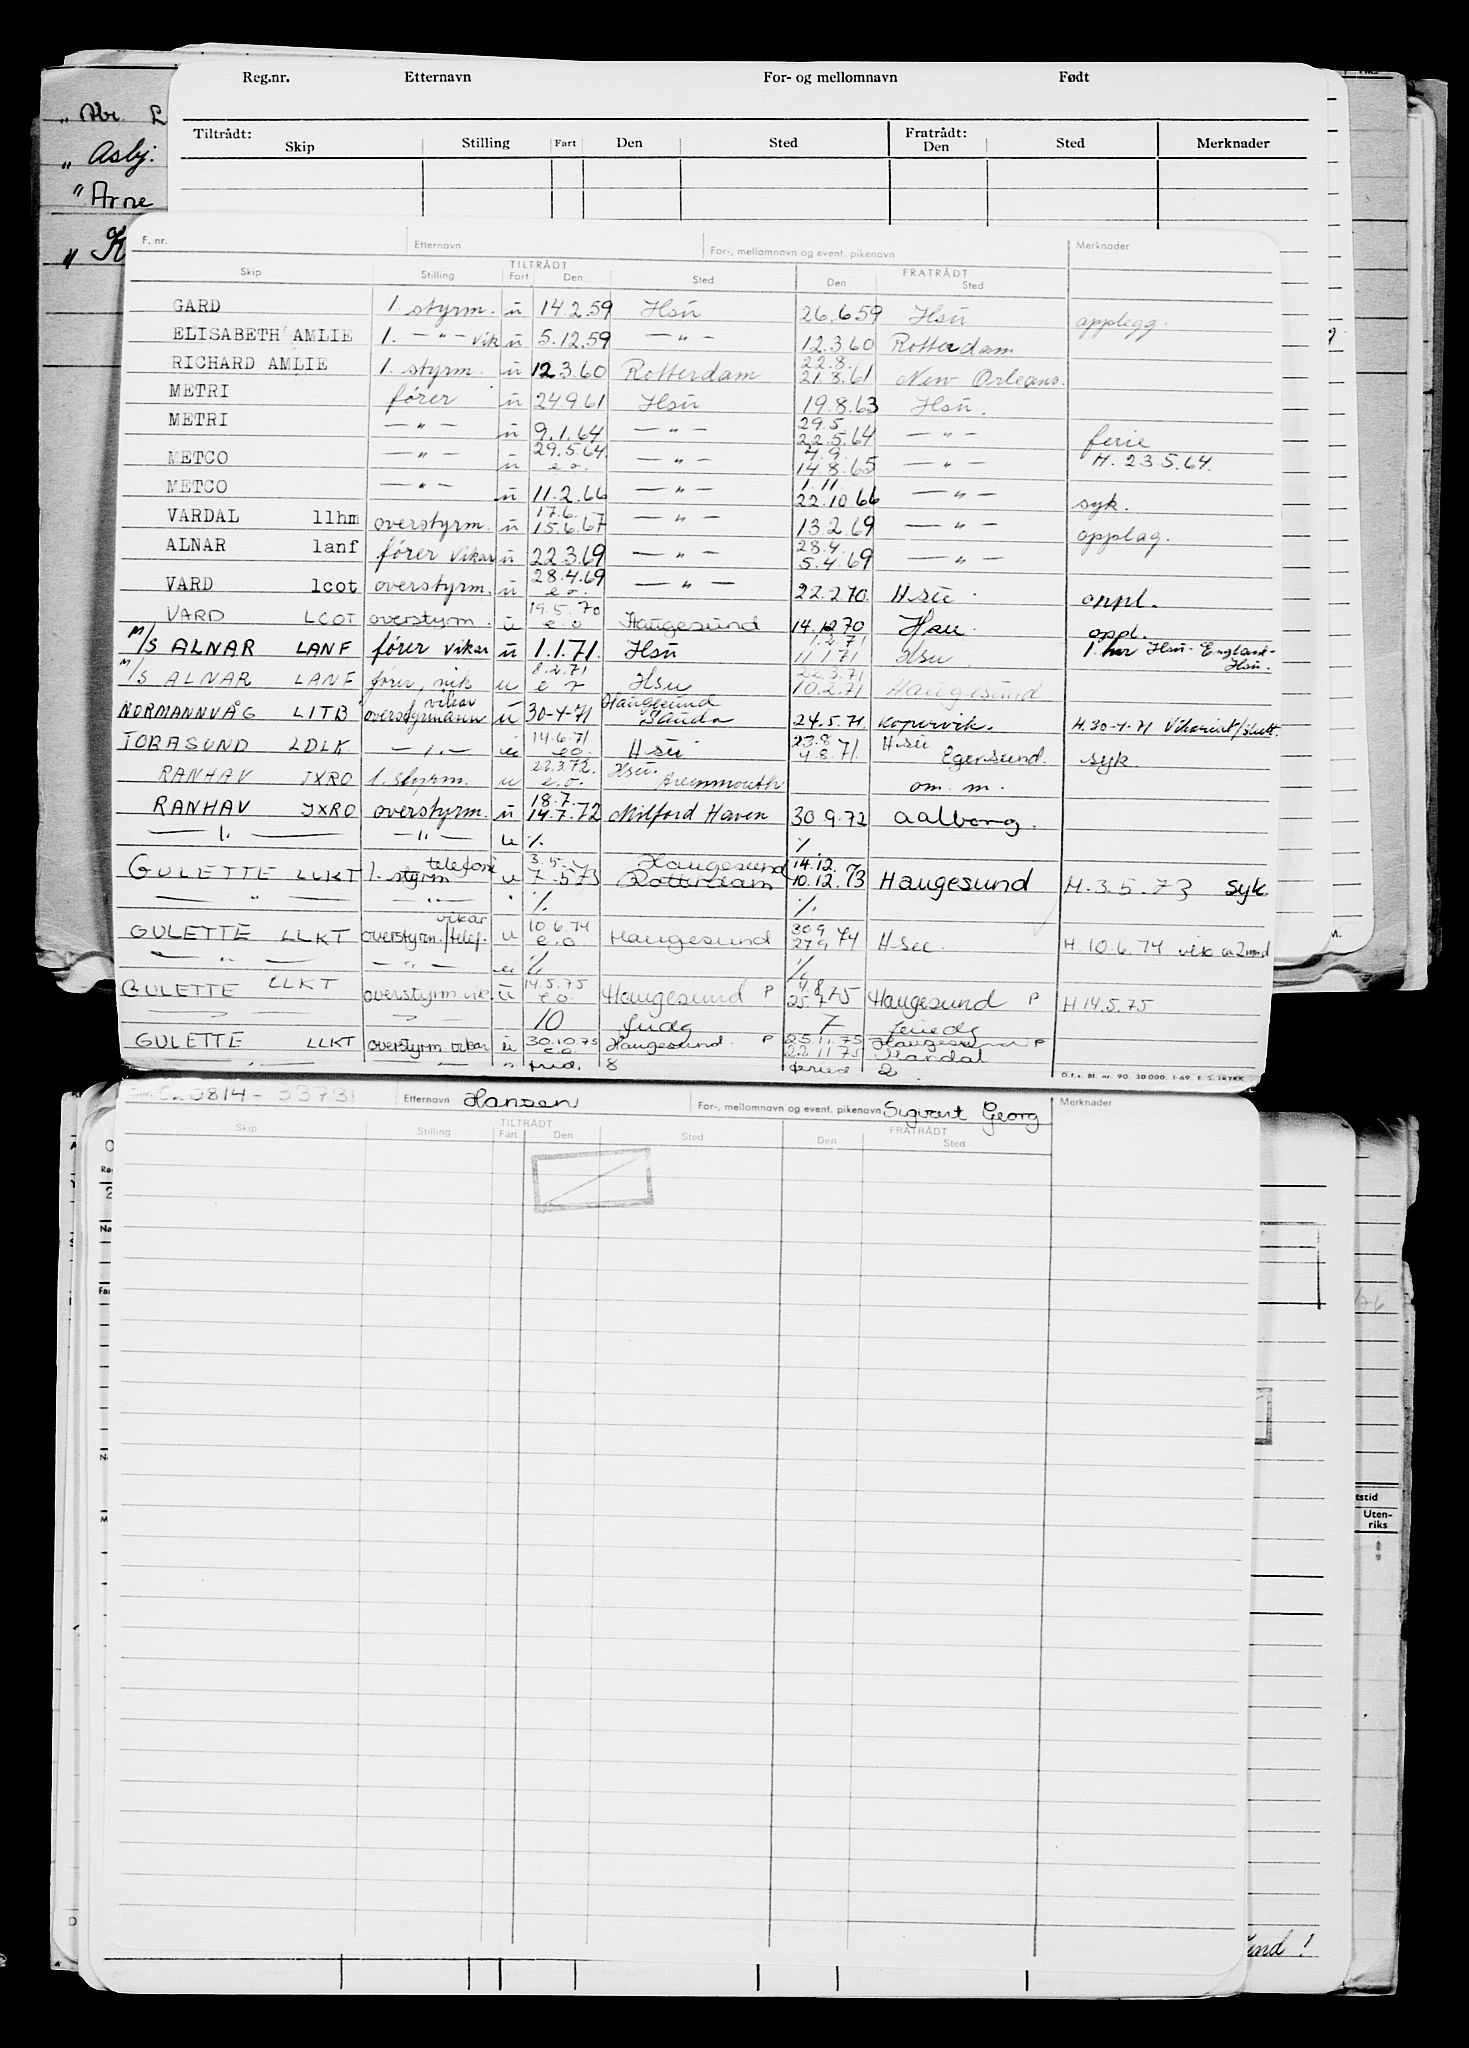 Reg.nr. Etternavn For- og mellomnavn Født
Tiltrådt: Fratrådt:
Skip Stilling Fart Den Sted Den Sted Merknader
" Asbj.
" Arne
F. nr. Etternavn For-, mellomnavn og event. pikenavn Merknader
TILTRÅDT FRATRÅDT
Skip Stilling Fart Den Sted Den Sted
GARD 1. styrm. u 14.2.59 Hsu 26.6.59 Hsu opplegg.
ELISABETH AMLIE 1. — " — vik u 5.12.59 — " — 12.3.60 Rotterdam
RICHARD AMLIE 1. styrm. u 12.3.60 Rotterdam 22.8. 21.8.61 New Orleans.
METRI fører u 24.9.61 Hsu 19.8.63 Hsu.
METRI — " — u 9.1.64 — " — 29.5. 22.5.64 — " — ferie
METCO — " — u 29.5.64 e.o. — " — 7.9. 14.8.65 — " — H. 23.5.64.
METCO — " — u 11.2.66 — " — 1.11. 22.10.66 — " — syk.
VARDAL llhm overstyrm. u 17.6. 15.6.67 — " — 13.2.69 — " — opplag.
ALNAR lanf fører vikar u 22.3.69 — " — 28.4. 5.4.69 — " —
VARD lcot overstyrm. u 28.4.69 e.o. — " — 22.2.70 Hsu. oppl.
VARD LCOT overstyrm. u 19.5.70 e.o Haugesund 14.12.70 Hsu oppl.
M/S ALNAR LANF fører vikar u 1.1.71. Hsu 1.2.71 11.1.71 Hsu 1. tur Hsu - England - Hsu.
M/S ALNAR LANF fører, vik u 8.2.71 e o Hsu 22.3.71 10.2.71 Haugesund
NORMANNVÅG LITB overstyrmann vikar u 30-4-71 Haugesund Sauda 24.5.71. Kopervik. H. 30-4-71
TORASUND LDLK — " — u 14.6.71 e.o. Hsu 23.8. 4.8.71. Hsu Egersund. syk.
RANHAV JXRO 1. styrm. u 22.3.72. e.o. Hsu. Avonmouth om. m.
RANHAV JXRO overstyrm. u 18.7. 14.7.72 Milford Haven 30.9.72 Aalborg.
— " — — " — u % %
GULETTE LLKT 1. styrm telefoni u 3.5. 7.5.73 Haugesund Rotterdam 14.12. 10.12.73 Haugesund H. 3.5.73 syk
— " — — " — " % %
GULETTE LLKT overstyrm./telef. vikar u 10.6.74 e.o. Haugesund 30.9 27.9.74 Hsu. H. 10.6.74 vik ca 2 mnd
— " — — " — u % %
GULETTE LLKT overstyrm. vik u 14.5.75 e.o. Haugesund P 4.8. 25.7.75 Haugesund P H. 14.5.75
— " — — " — 10 fridg 7 feriedg
GULETTE LLKT overstyrm vikar u 30.10.75 e.o. Haugesund. P 25.11.75 22.11.75 Haugesund P Mandal
— " — — " — " frid. 8 feried 2
D.f.s. Bl. nr. 90. 30 000. 1-69. E. S. TRYKK
020814 - 33731 Etternavn Hansen For-, mellomnavn og event. pikenavn Sigvart Georg Merknader
TILTRÅDT FRATRÅDT
Skip Stilling Fart Den Sted Den Sted
Uten-
riks